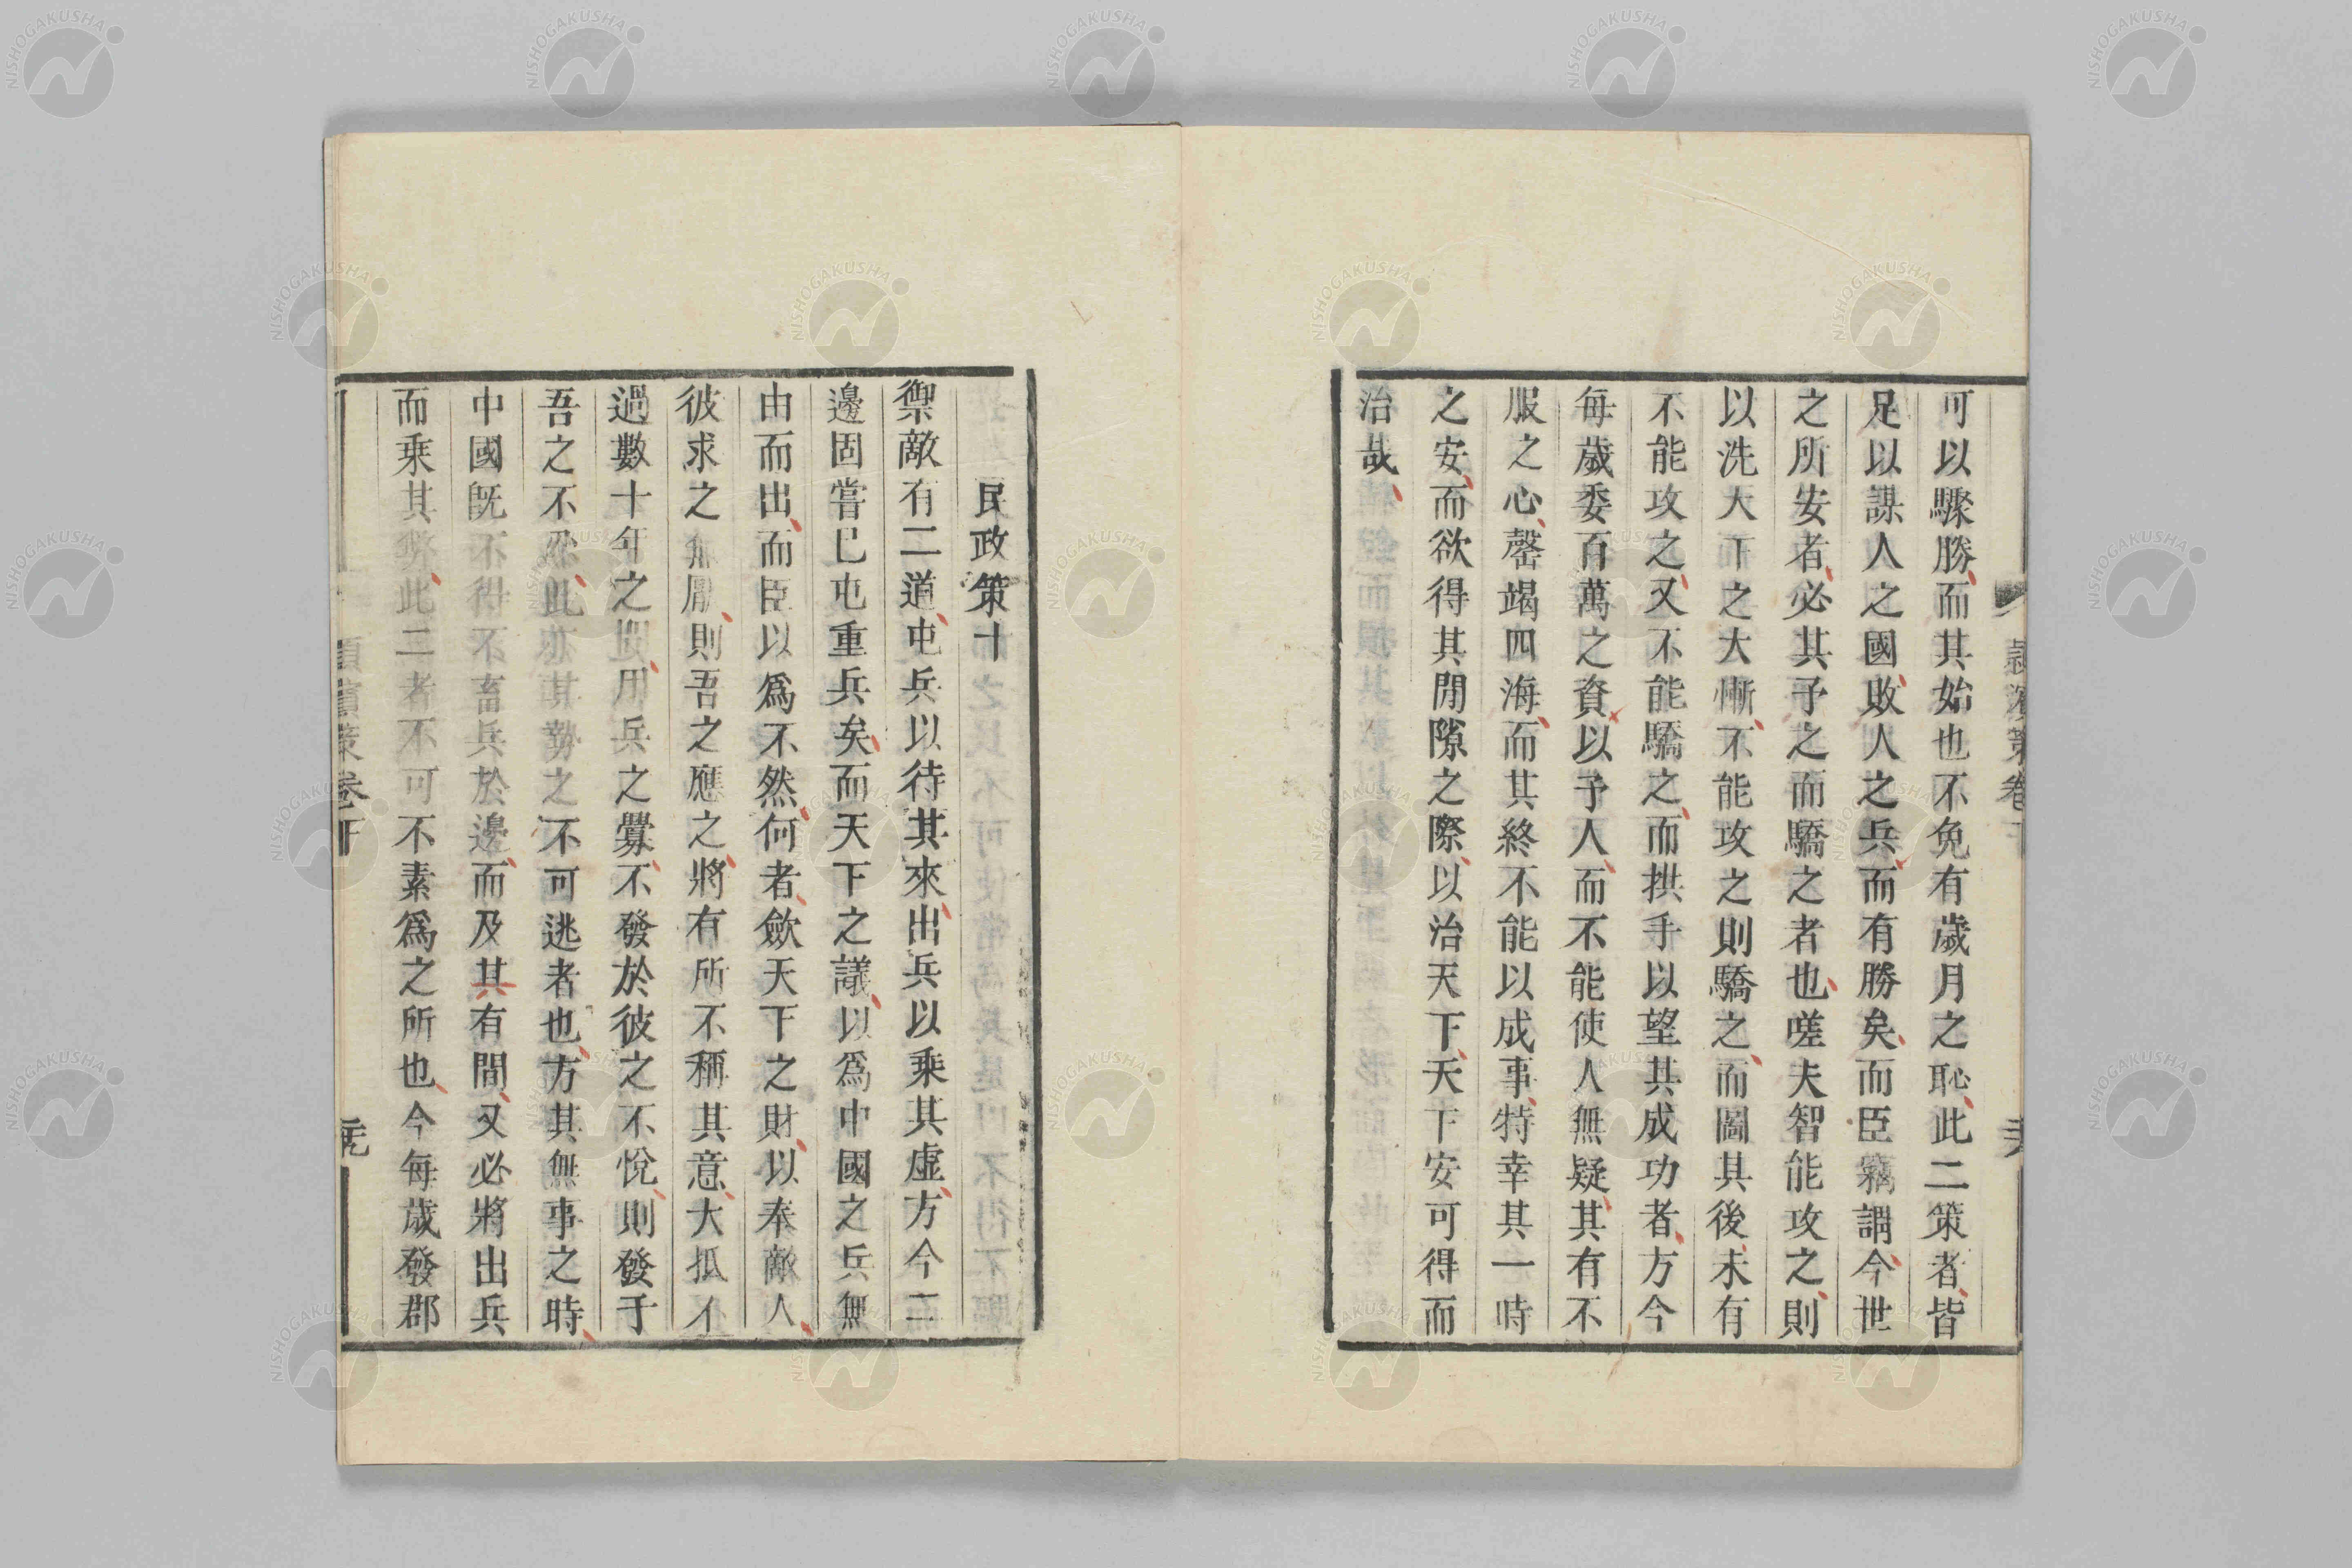 可以驟勝而其始也不免有歲月之恥此二策者皆
足以謀人之國敗人之兵而有勝矣而臣竊謂今世
之所安者必其予之而驕之者也嗟夫智能攻之則
以洗大下之大慚不能攻之則驕之而圖其後未有
不能攻之又不能驕之而拱手以望其成功者方今
每歲委百萬之資以予人而不能使人無疑其有不
服之心罄竭四海而其終不能以成事特幸其一時
之安而欲得其閒隙之際以治天下天下安可得而
治哉
民政策十
禦敵有二道屯兵以待其來出兵以乘其虛方今二
邊固嘗已屯重兵矣而天下之議以爲中國之兵無
由而出而臣以爲不然何者斂天下之財以奉敵人
彼求之無厭則吾之應之將有所不稱其意大抵不
過數十年之間用兵之釁不發於彼之不悅則發于
吾之不忍此亦其勢之不可逃者也方其無事之時
中國旣不得不畜兵於邊而及其有間又必將出兵
而乘其弊此二者不可不素爲之所也今每歲發郡
潁濱策卷下
潁濱策卷下
NISHOGAKUSHA